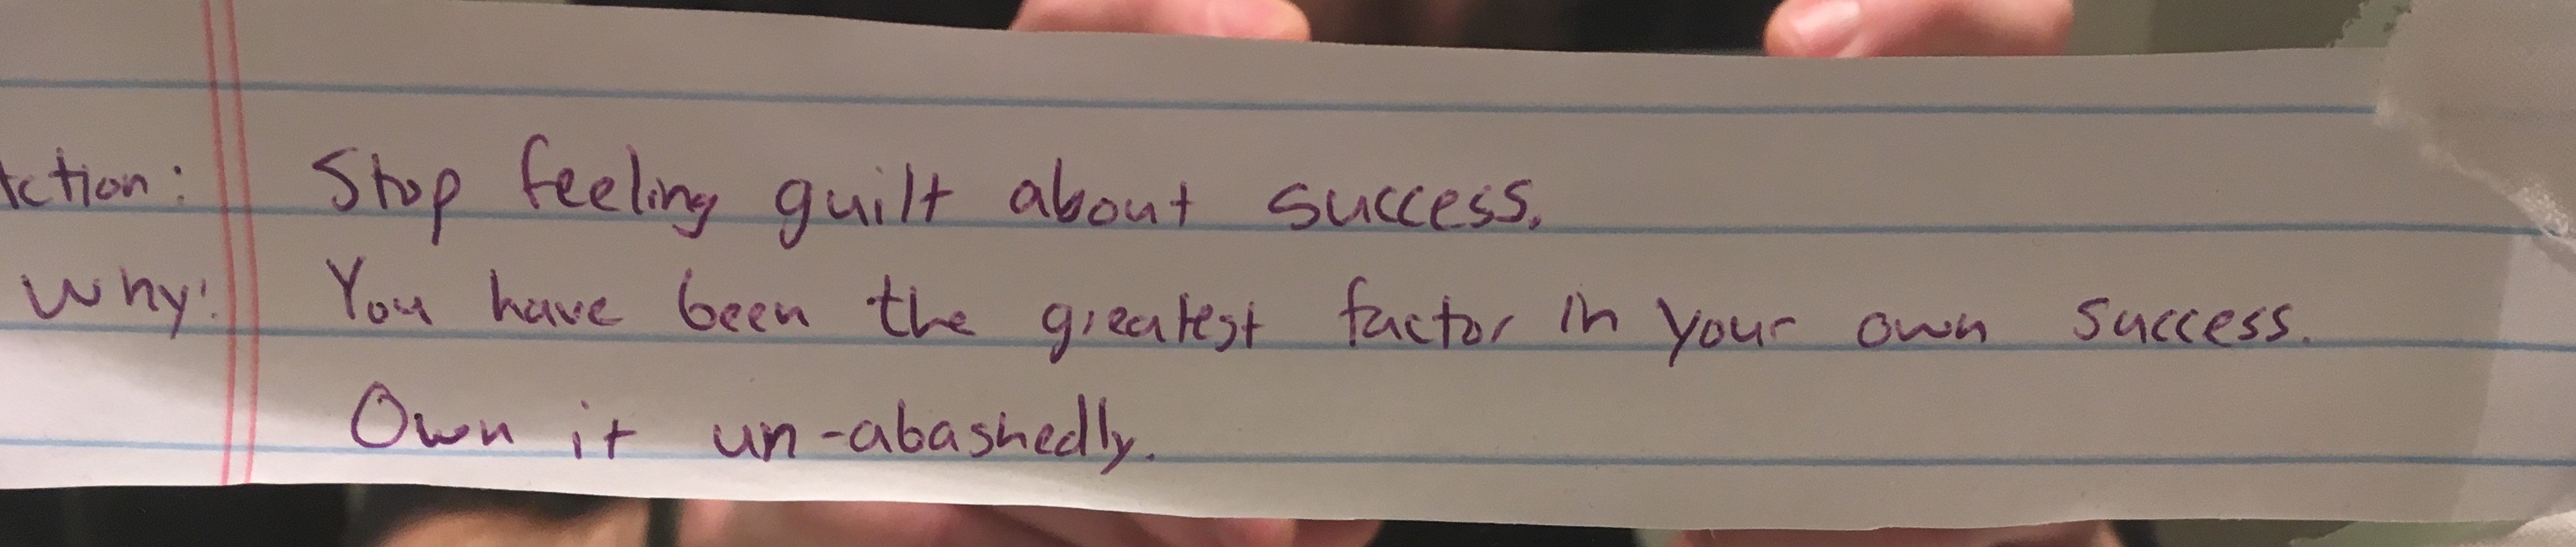 Action: Stop feeling guilt about success.
Why: You have been the greatest factor in your own success.
Own it un-abashedly.